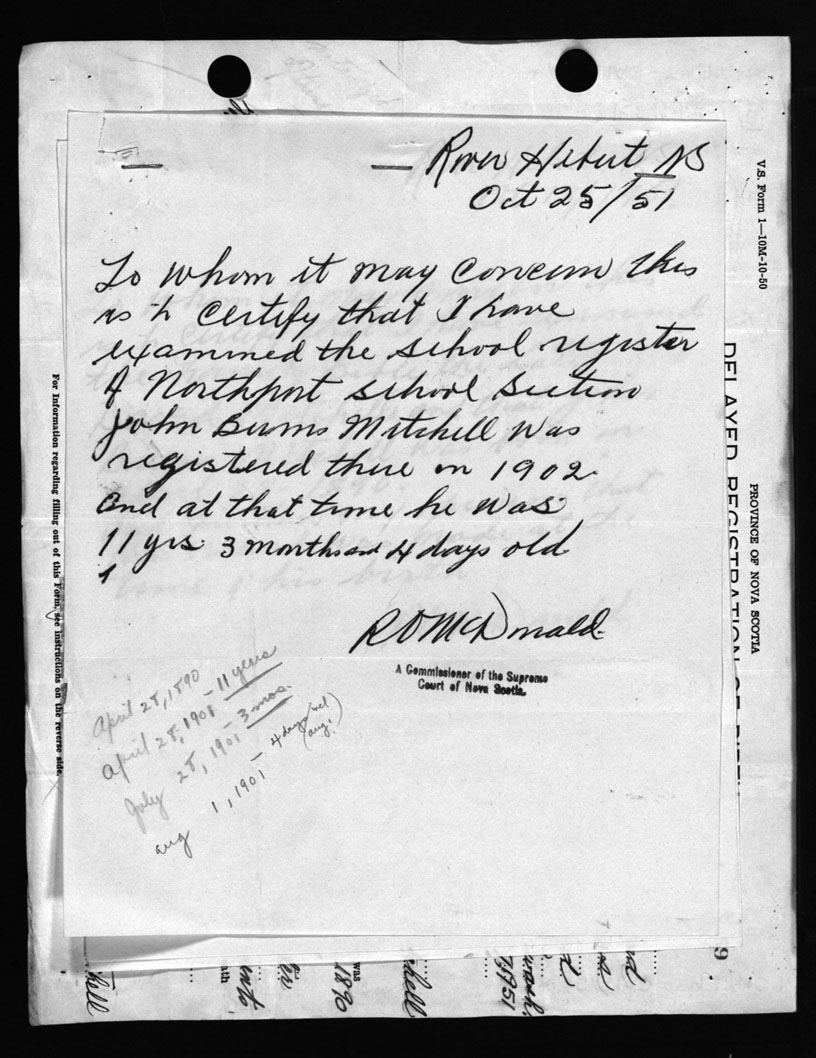 River Hebert NS
Oct 25/51
To whom it may Concern this
is to Certify that I have
examined the school register
of Northport school section
John Burns Mitchell was
registered there in 1902
and at that time he was
11 yrs 3 months and 4 days old
R O McDonald
A Commissioner of the Supreme
Court of Nova Scotia.
April 28, 1890
April 28, 1901 - 11 years
July 28, 1901 - 3 mos.
Aug 1, 1901 - 4 days (incl
Aug 1)
V.S. Form 1—10M-10-50
PROVINCE OF NOVA SCOTIA
DELAYED REGISTRATION OF
For Information regarding filling out of this Form, see instructions on the reverse side.
was
1890